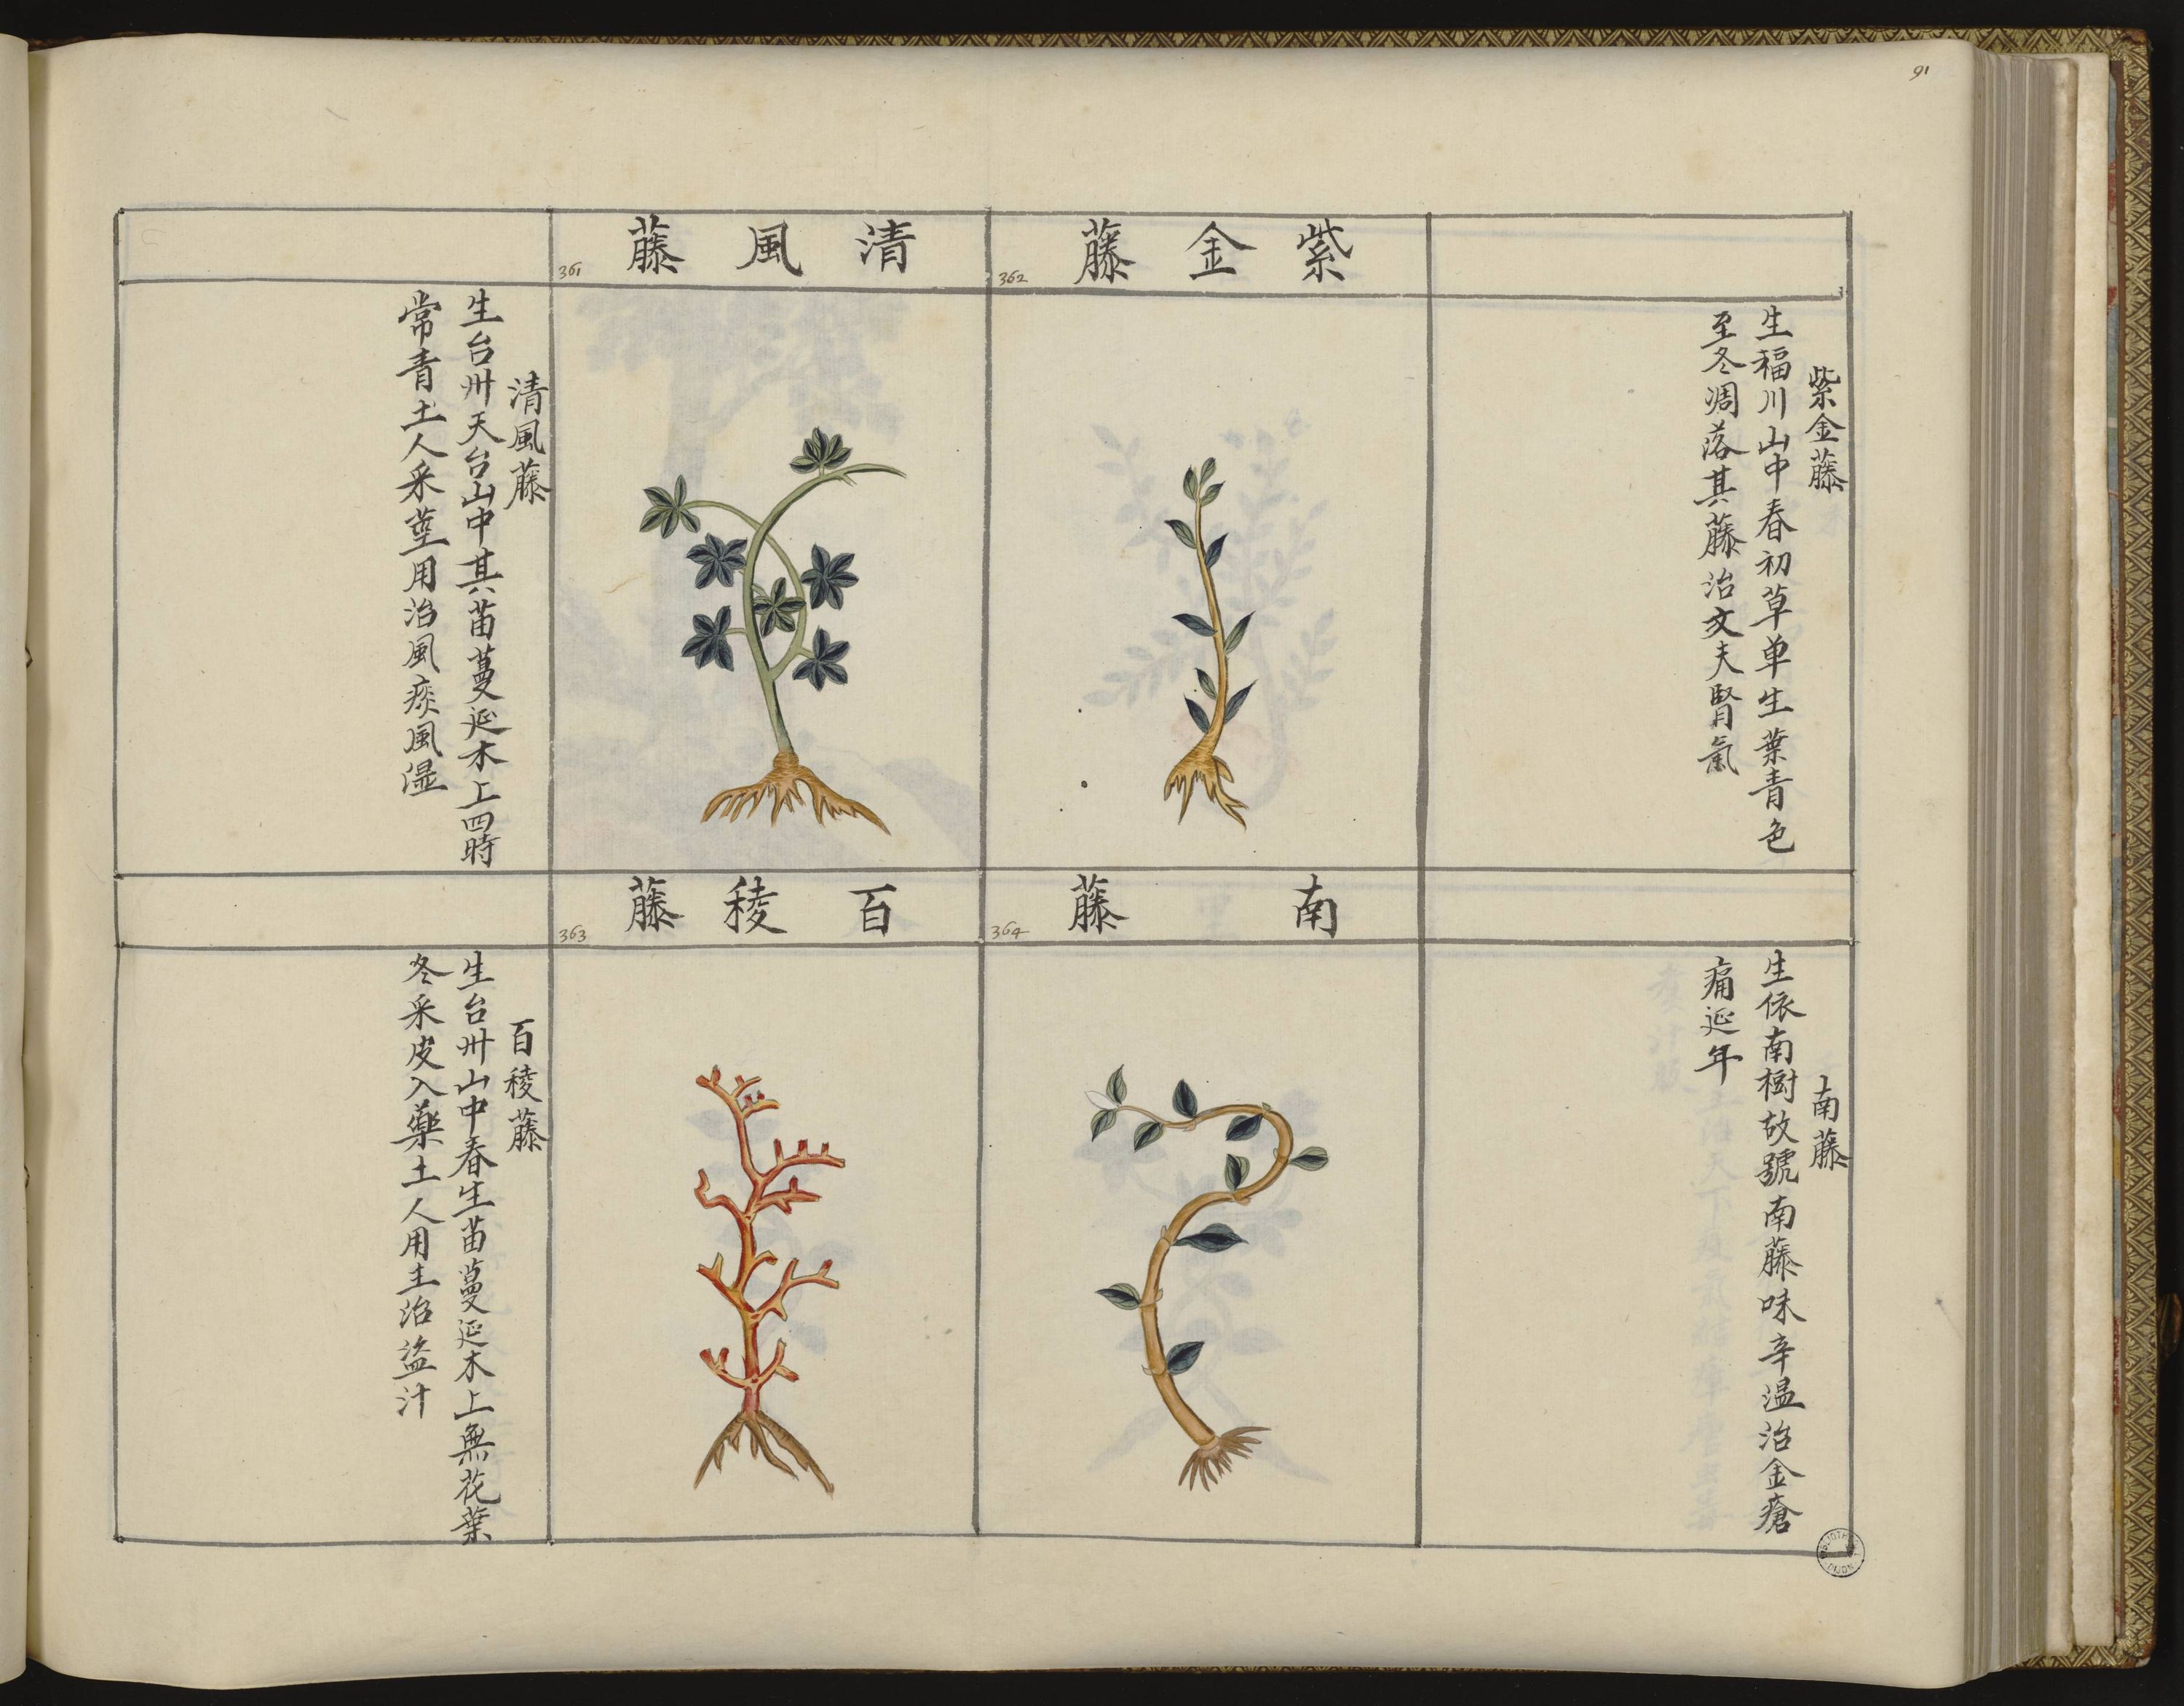 91
紫金藤
362
紫金藤
生福川山中春初草单生葉青色
至冬凋落其藤治文夫腎氣
清風藤
361
清風藤
生台卅天台山中其苗蔓延木上四時
常青土人采莖用治風痰風濕
南藤
364
南藤
生依南樹故號南藤味辛温治金瘡
痛延年
百稜藤
363
百稜藤
生台卅山中春生苗蔓延木上無花葉
冬采皮入藥土人用主治盜汁